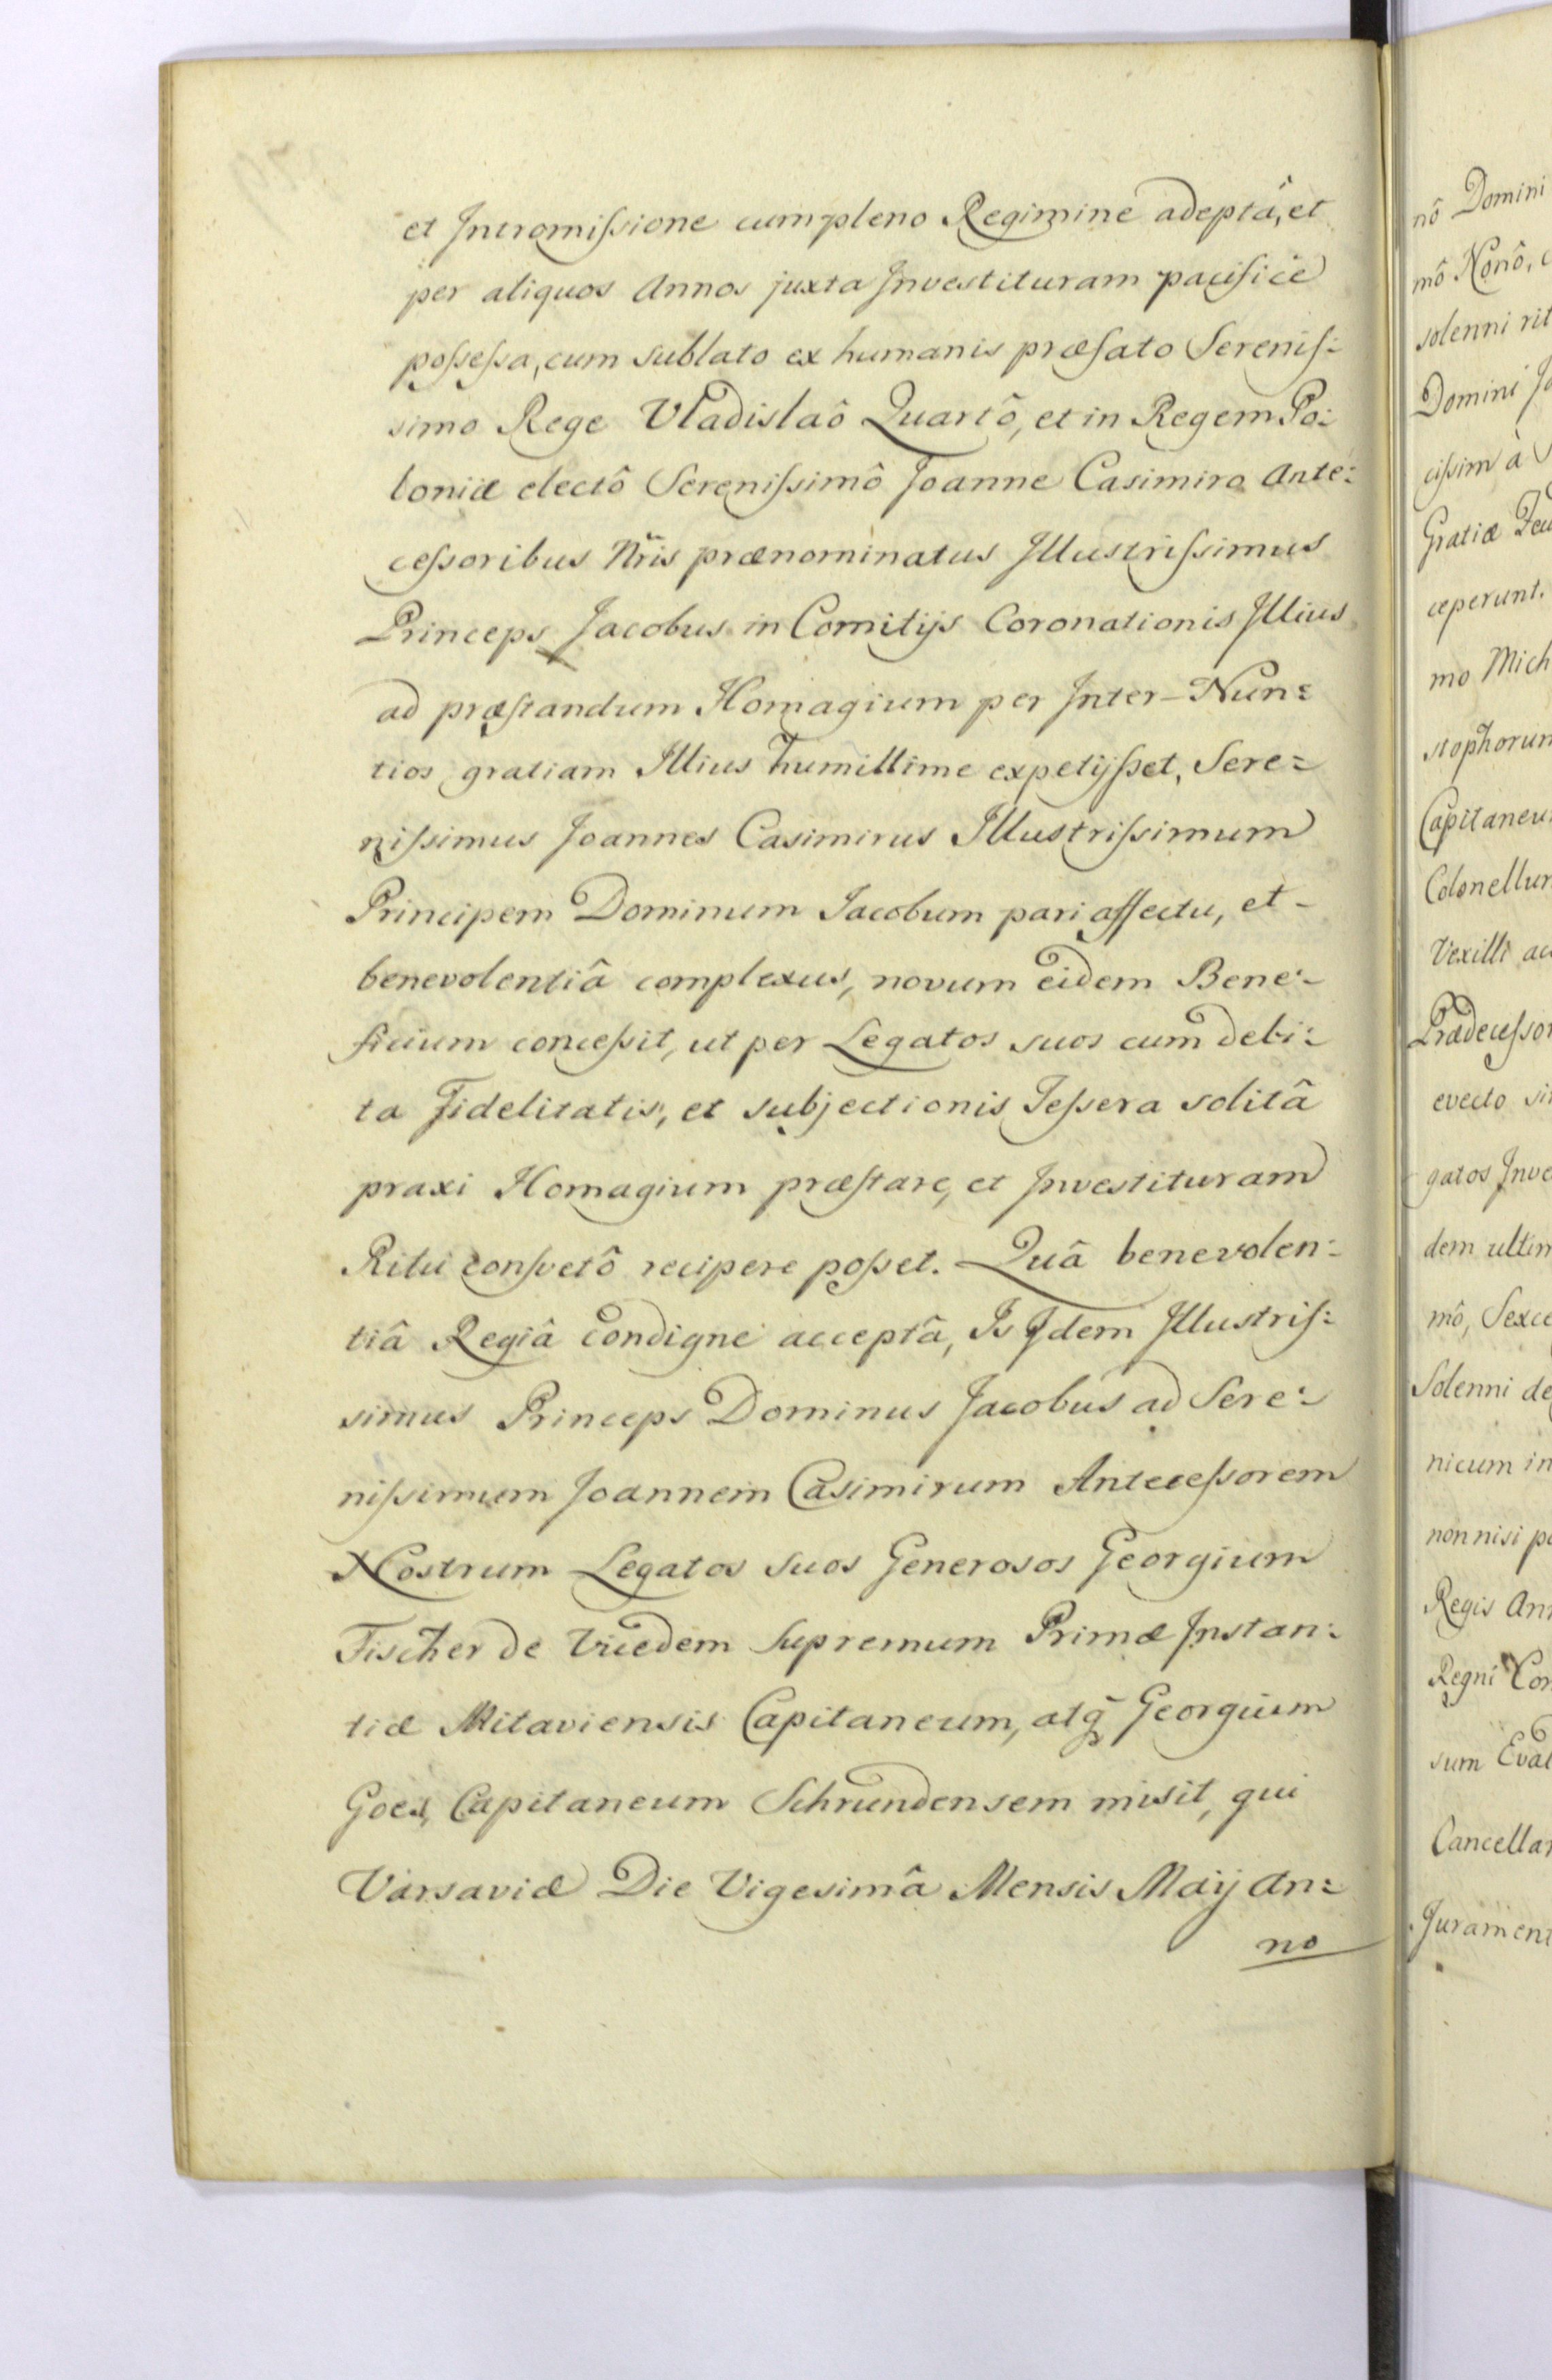 et Intromiſsione cum pleno Regimine adeptâ, et
per aliquos Annos juxta Investituram pacifice
poſseſsa, cum sublato ex humanis præfato Sereniſ:
simo Rege Vladislaô Quartô, et in Regem Po:
loniæ electô Sereniſsimô Joanne Casimiro Ante:
ceſsoribus Nr̃is prænominatus Illustriſsimus
Princeps Jacobus in Comitijs Coronationis Illius
ad præstandum Homagium per Inter-Nun:
tios gratiam Illius humillime expetijſset, Sere:
niſsimus Joannes Casimirus Illustriſsimum
Principem Dominum Jacobum pari affectu, et -
benevolentiâ complexus, novum eidem Bene:
ficium conceſsit, ut per Legatos suos cum debi:
ta Fidelitatis, et subjectionis Teſsera solitâ
praxi Homagium præstare, et Investituram
Ritu conſvetô recipere poſset. Quâ benevolen:
tiâ Regiâ condigne acceptâ, Is Idem Illustriſ:
simus Princeps Dominus Jacobus ad Sere:
niſsimum Joannem Casimirum Anteceſsorem
Nostrum Legatos suos Generosos Georgium
Fischer de Vicedem Supremum Primæ Instan:
tiæ Mitaviensis Capitaneum, atq̃ Georgium
Goes, Capitaneum Schrundensem misit, qui
Varsaviæ Die Vigesimâ Mensis Maij An:
no
nô Domini
mô Nonô,
solenni rit
Domini
ciſsim à
Gratiæ
ceperunt.
mo Mich
stophorum
Capitaneu
Colonellum
Vexilli
Prædeceſsor
evecto
gatos Inve
dem ultim
mô, Sexce
Solenni de
nicum in
non nisi
Regis Ann
Regni Con
sum
Cancellar
Jurament